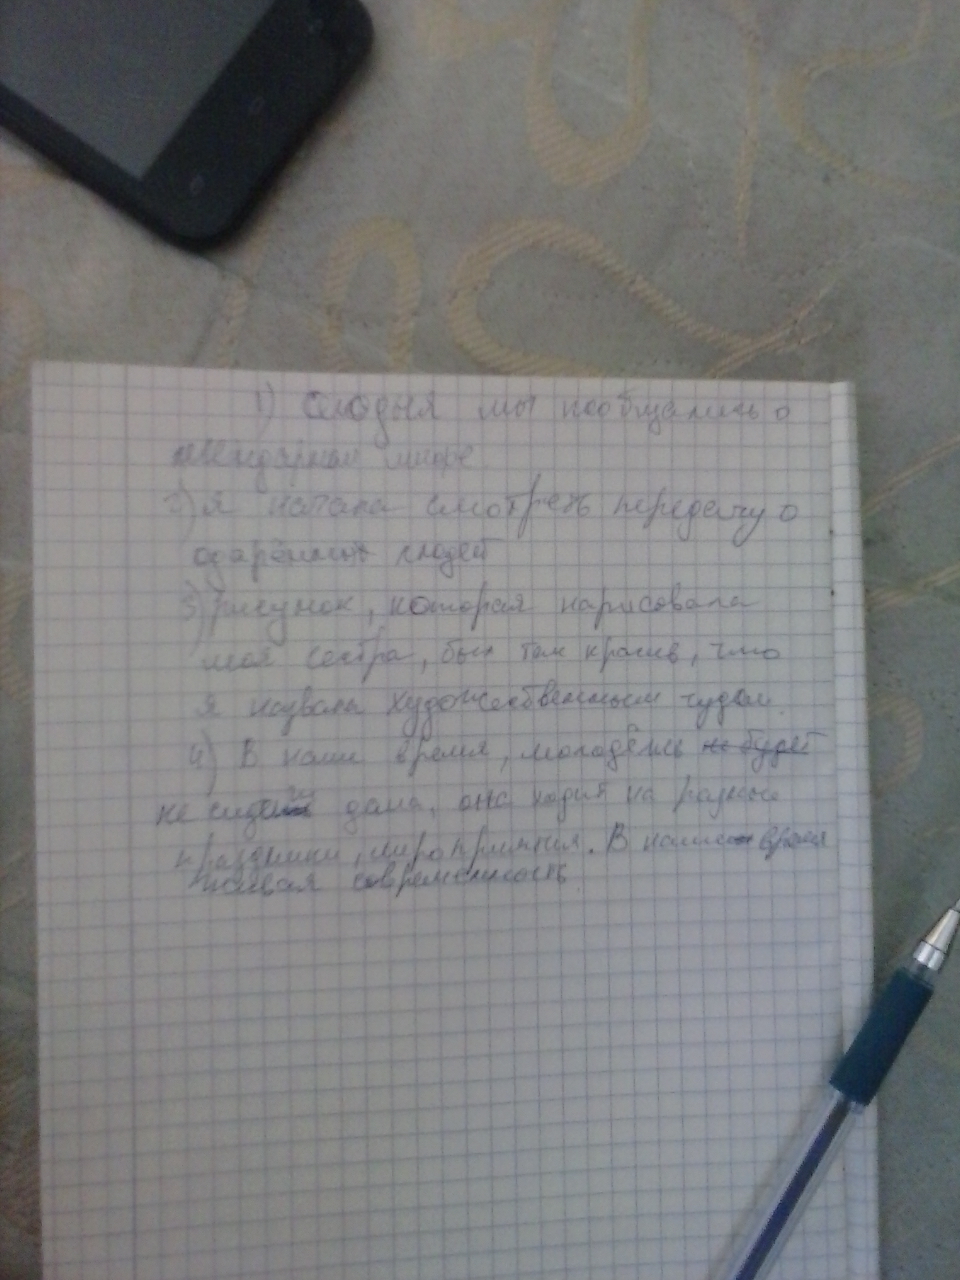 1) мы пообщались о
2) я начала смотреть передачу о
одарённых людей
3) рисунок, которая нарисовала
моя сестра, был так красив, что
я назвала художественным чудом.
4) В наше время, молодёжь не будет
не дома, она ходит на разные
праздники, В наше время
живая современность